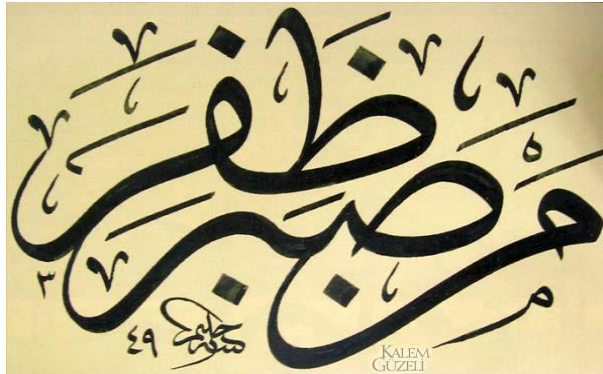 مَنْ صَبَرَ ظَفَرَ
٤٩
KALEM GÜZELİ